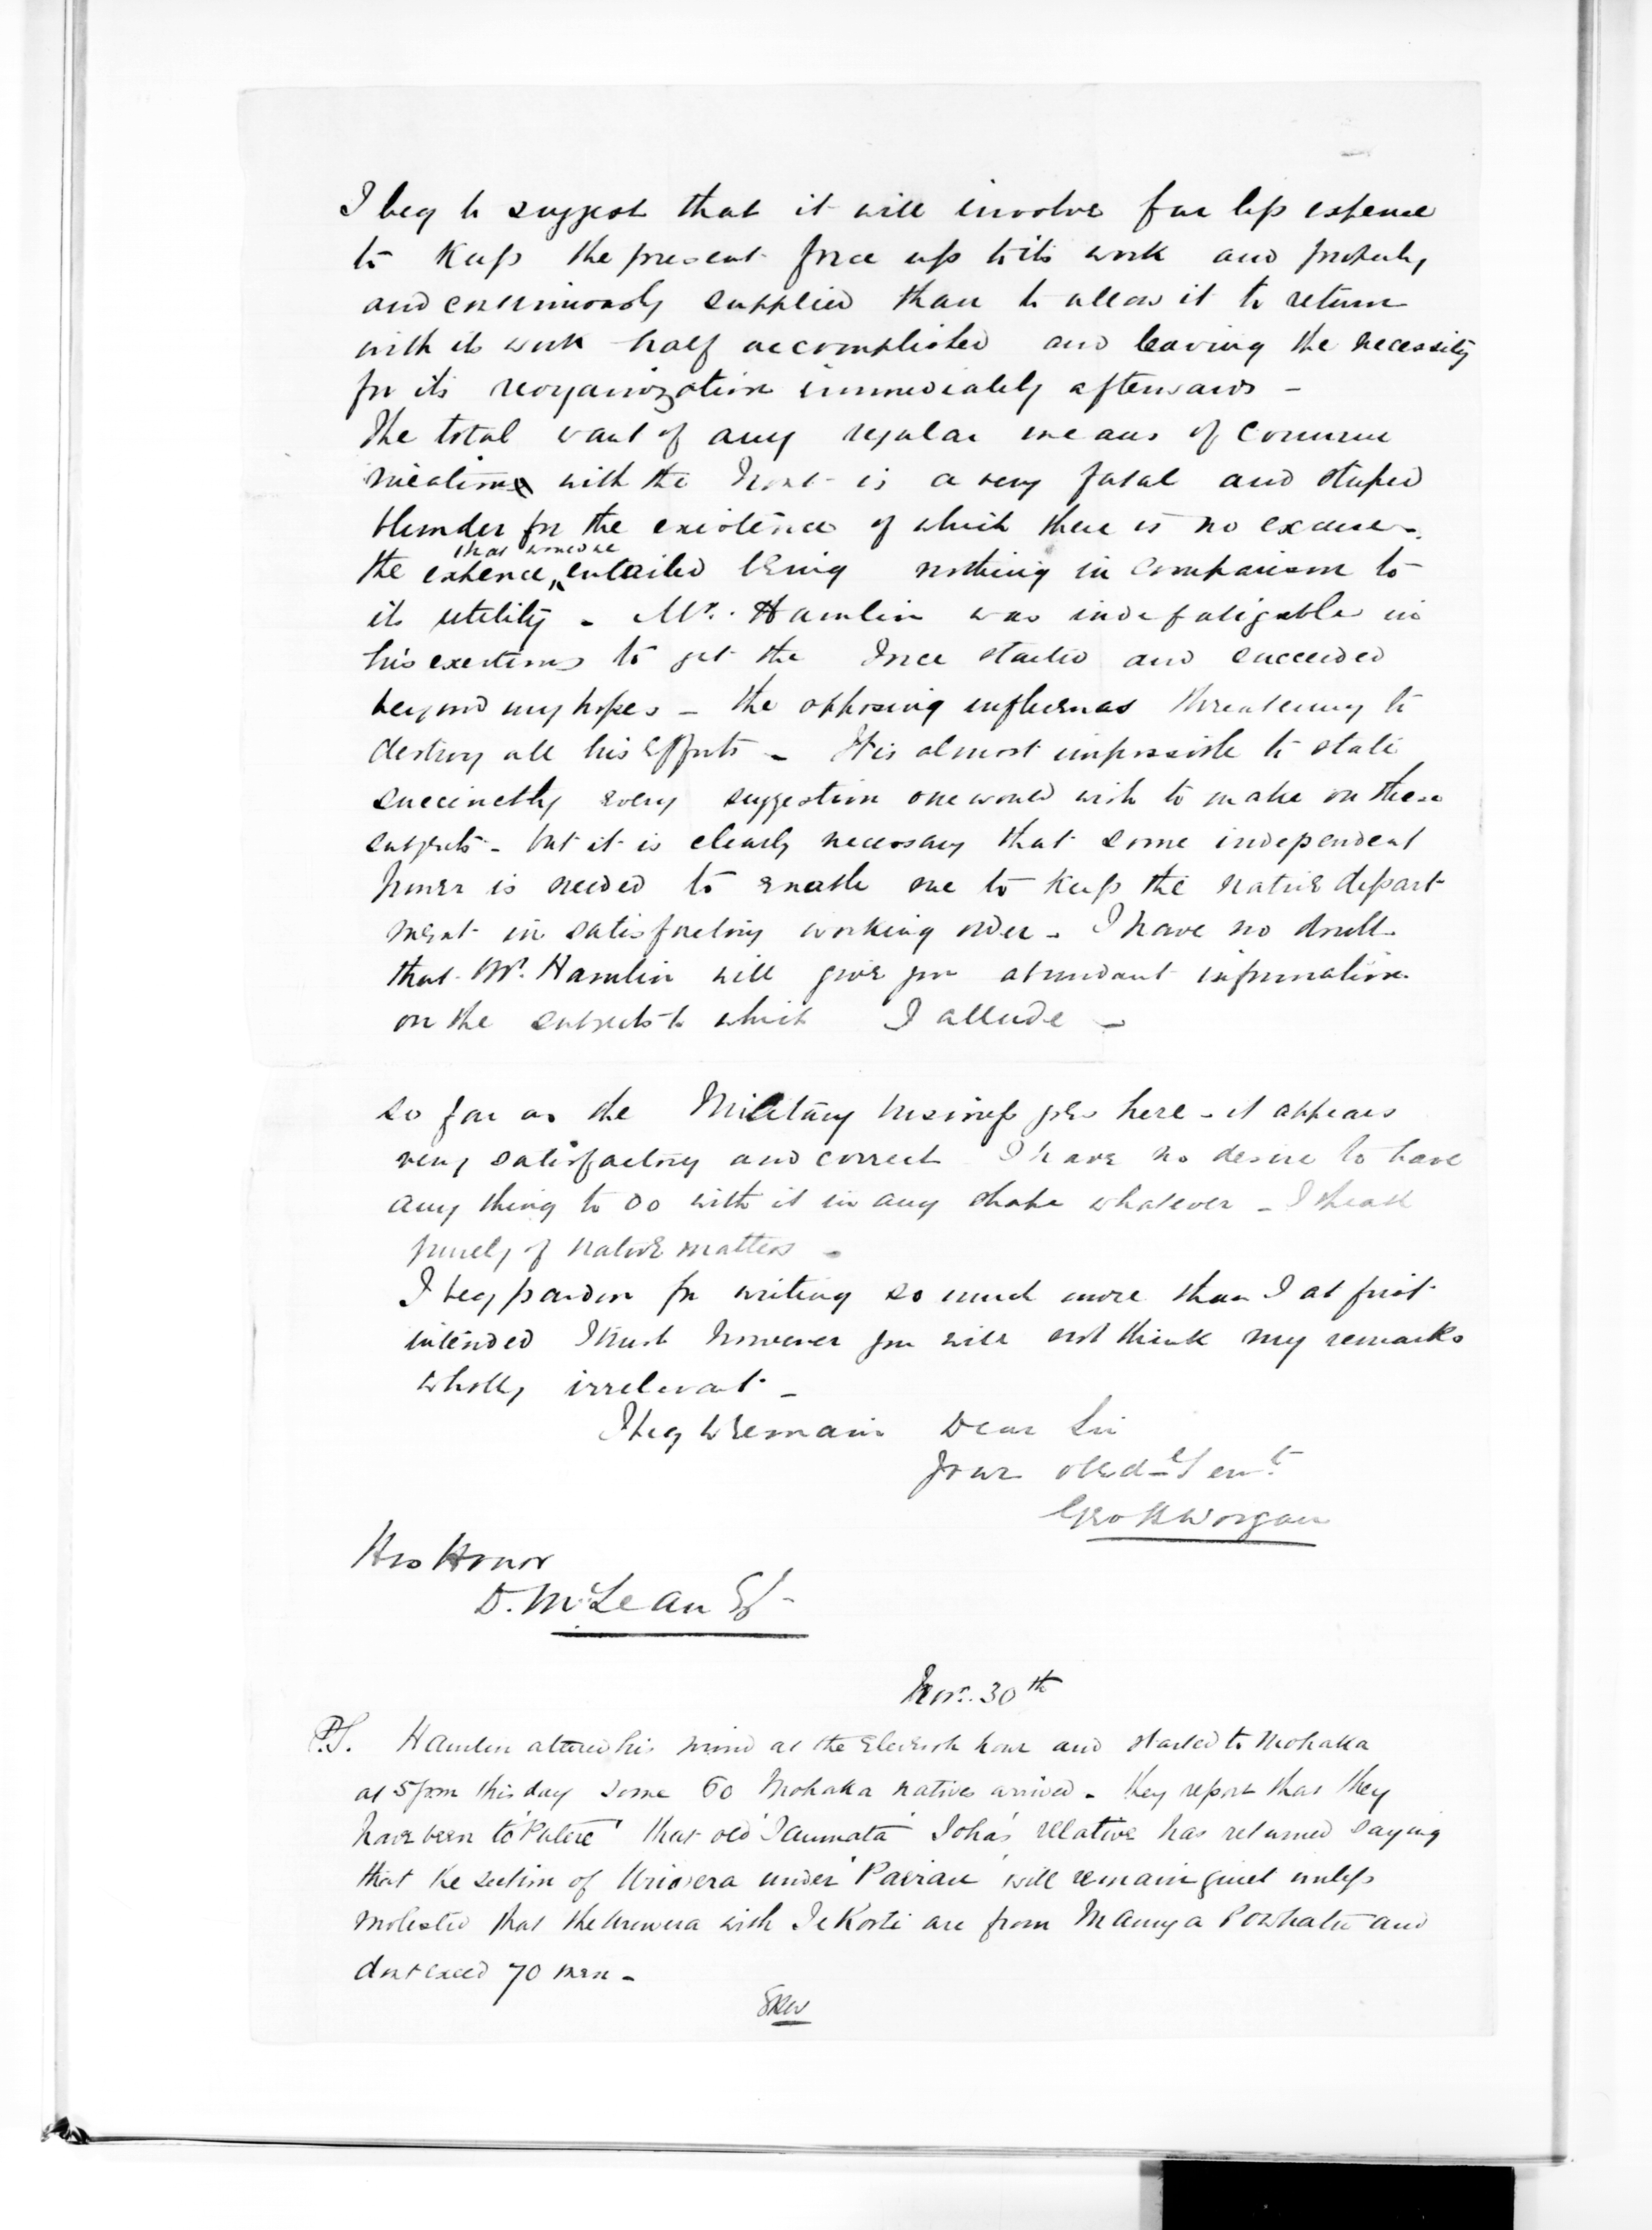 I beg to suggest that it will involve far less expence
to keep the present force up to its work and properly
and continuously supplied than to allow it to return
with its work half accomplished and leaving the necessity
for its reorganization immediately afterwards -
The total want of any regular means of commu
nication with the Front is a very fatal and stupid
blunder for the existence of which there is no excuse -
that would be
the expence entailed being nothing in comparison to
its utility - Mr. Hamlin was indefatigable in
his exertions to get the Force started and succeeded
beyond my hopes - the opposing influences threatening to
destroy all his efforts - It is almost impossible to state
succinctly every suggestion one would wish to make on these
subjects - but it is clearly necessary that some independent
power is needed to enable me to keep the native depart
ment in satisfactory working order - I have no doubt
that Mr. Hamlin will give you abundant information
on the subjects to which I allude -
So far as the Military business goes here - it appears
very satisfactory and correct I have no desire to have
any thing to do with it in any shape whatever - I speak
purely of native matters -
I beg pardon for writing so much more than I at first
intended I trust however you will not think my remarks
wholly irrelevant -
I beg to remain Dear Sir
Your obedt Servt
Geo R Worgan
His Honor
D. McLean Esq -
Nov. 30th
P.S. Hamlin altered his mind at the eleventh hour and started to Mohaka
at 5 pm this day some 60 Mohaka natives arrived - they report that they
have been to 'Putere' that old 'Taumata' Ioha's relative has returned saying
that the section of Uriwera under 'Paerau' will remain quiet unless
molested that the Urewera with Te Kooti are from Maunga Powhatu and
dont exceed 70 men -
GRW